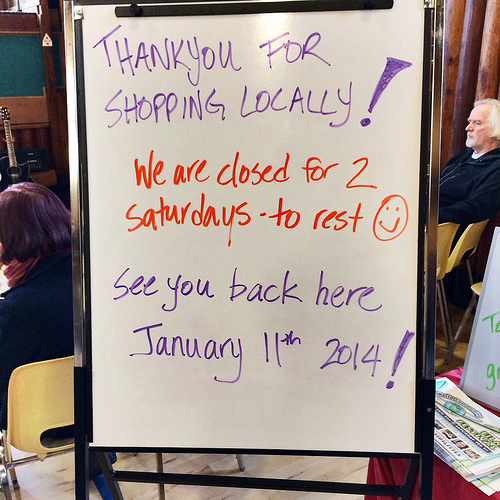 THANKYOU FOR
SHOPPING LOCALLY!
We are closed for 2
saturdays - to rest
See you back here
January 11th 2014!